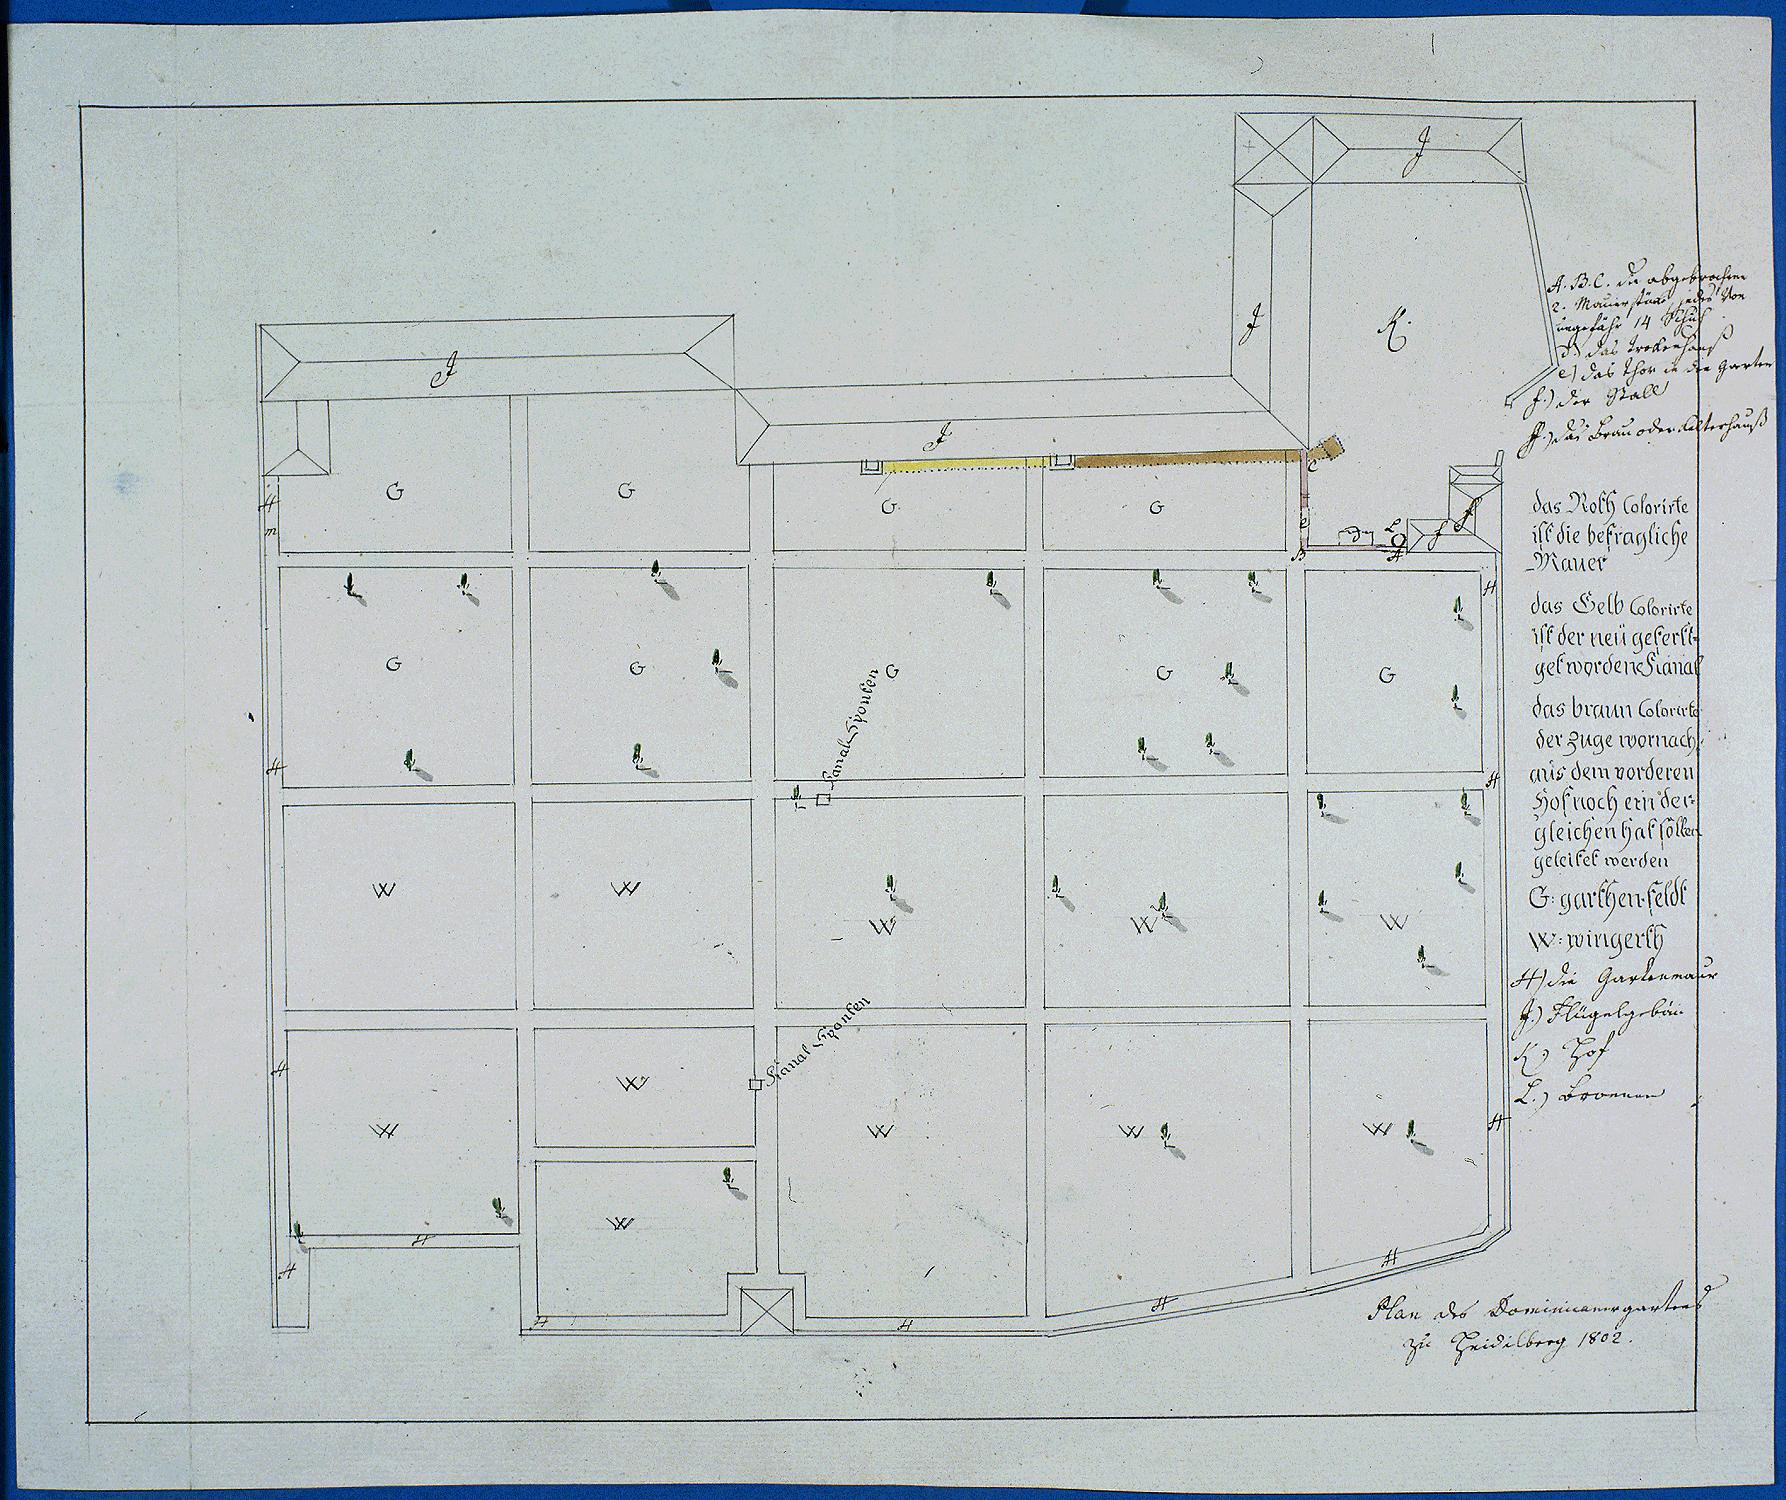 J
J
K.
J
J
A. B. C. die abgebrochene
2. Mauerstück jedes von
ungefähr 14 Schuh
d) das Trockenhauß
e) das Thor in den Garten
f.) der Stall
ff.) das Brau oder Kelterhauß
C
G
G
G
G
H
m
e
L
f
f
B
A
das Roth Colorirte
ist die befragliche
Mauer
das Gelb Colorirte
ist der neü gefertt-
get wordene Kanal
das braun Colorirte
der Zuge wornach
aus dem vorderen
Hof noch ein der-
gleichen hat sollen
geleitet werden
G: garthen-feldt
W: wingerth
H) die Gartenmaur
J.) Flügelgebäu
K.) Hof
L.) Bronnen
H
G
G
G
G
G
Kanal Sponten
H
H
W
W
W
W
W
Kanal Sponten
H
W
W
W
W
W
H
W
H
H
H
H
H
H
Plan des Dominicanergartens
zu Heidelberg 1802.